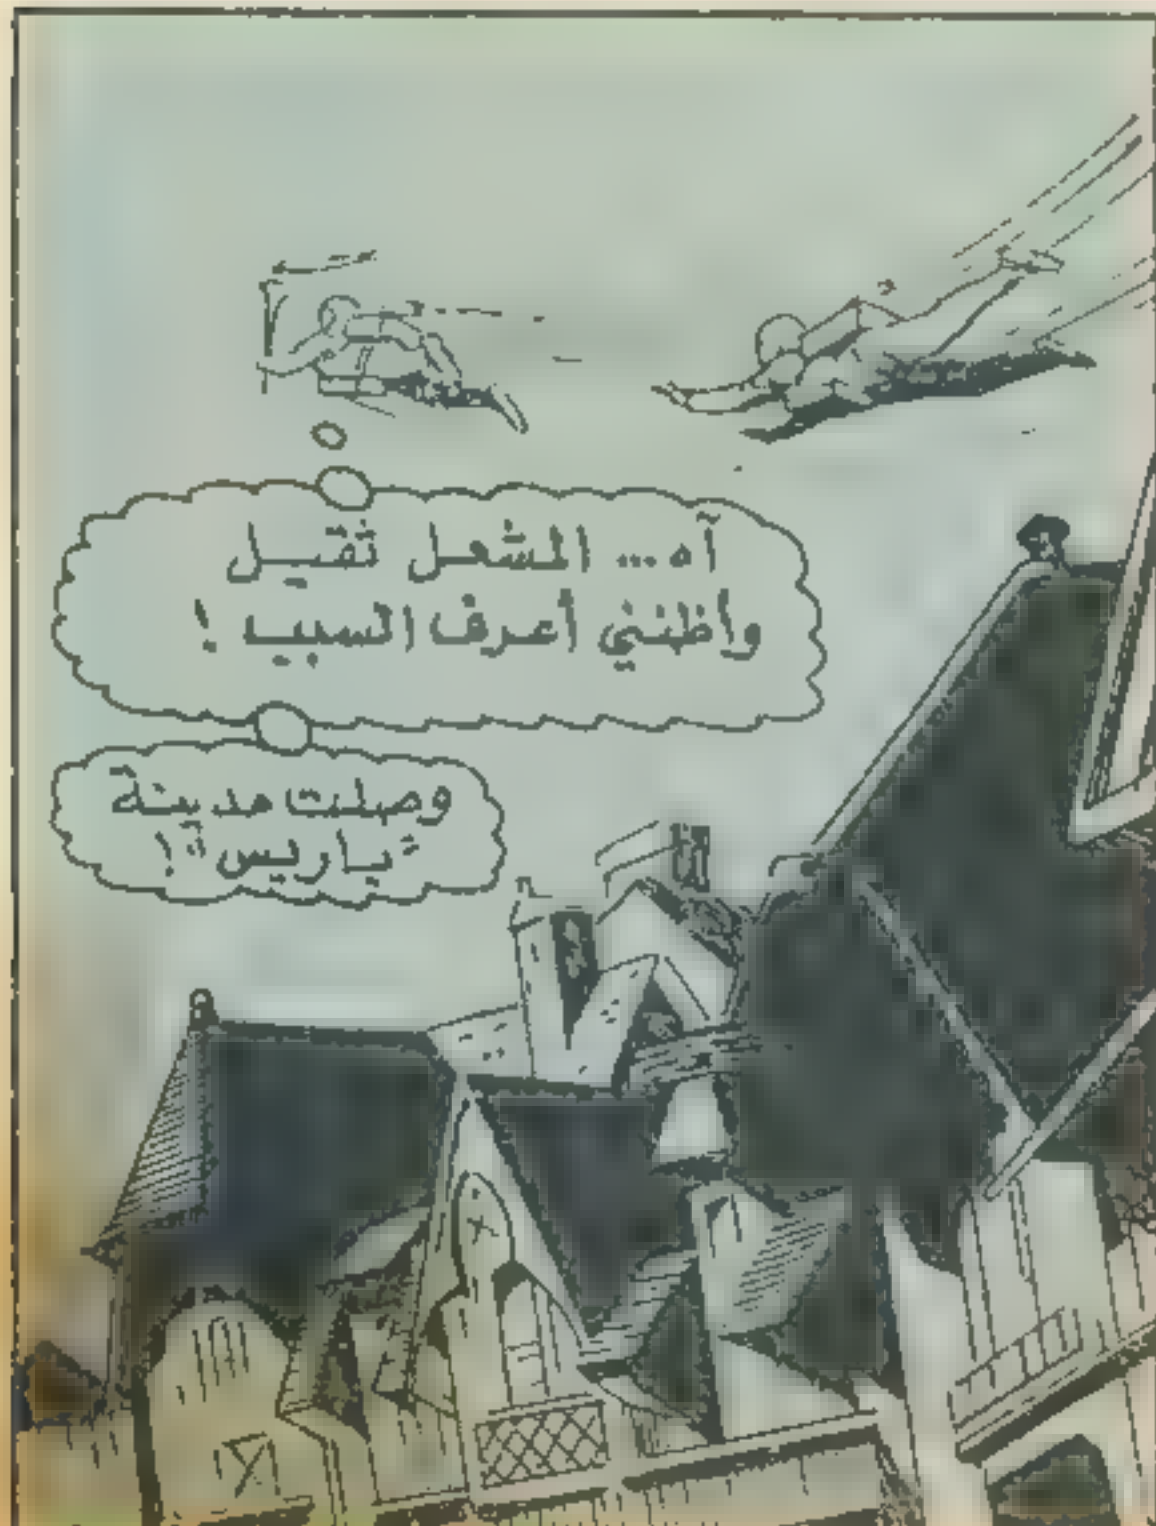 آه... المشعل ثقيل
وأظنني أعرف السبب !
وصلت مدينة
"باريس" !